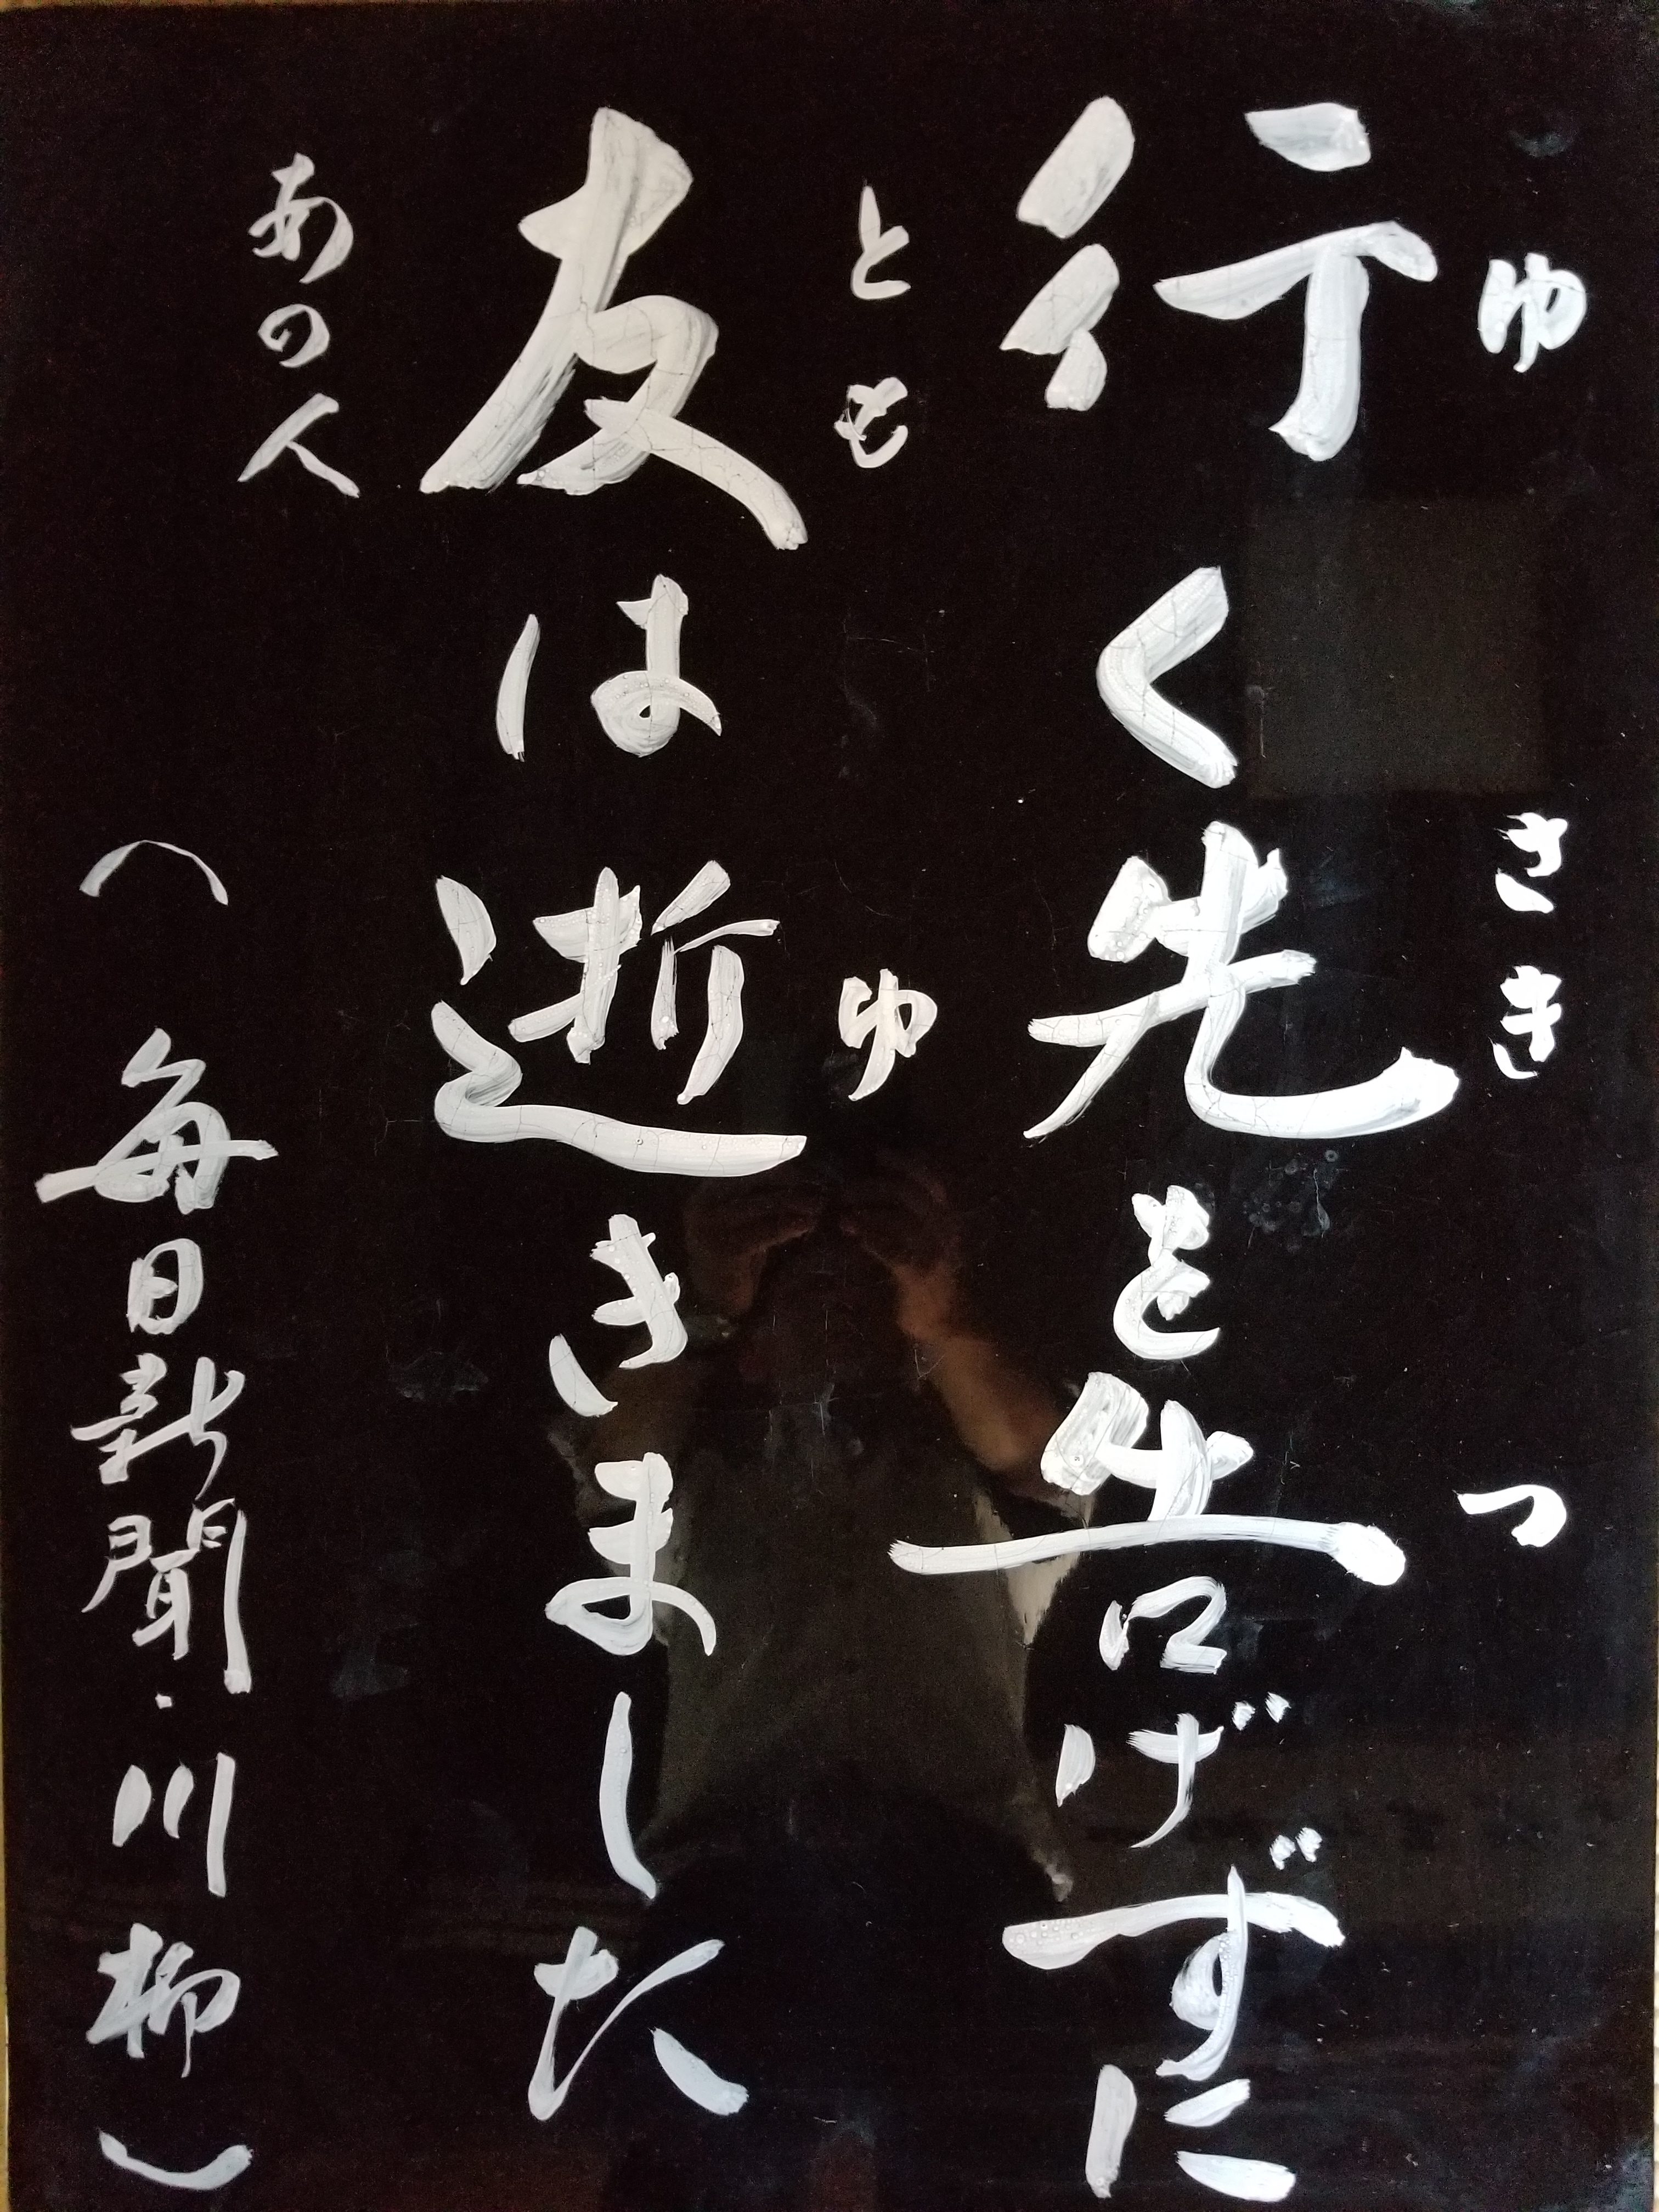 ゆ さき つ
行く先を告げずに
とも ゆ
友は逝きました
あの人
(毎日新聞・川柳)